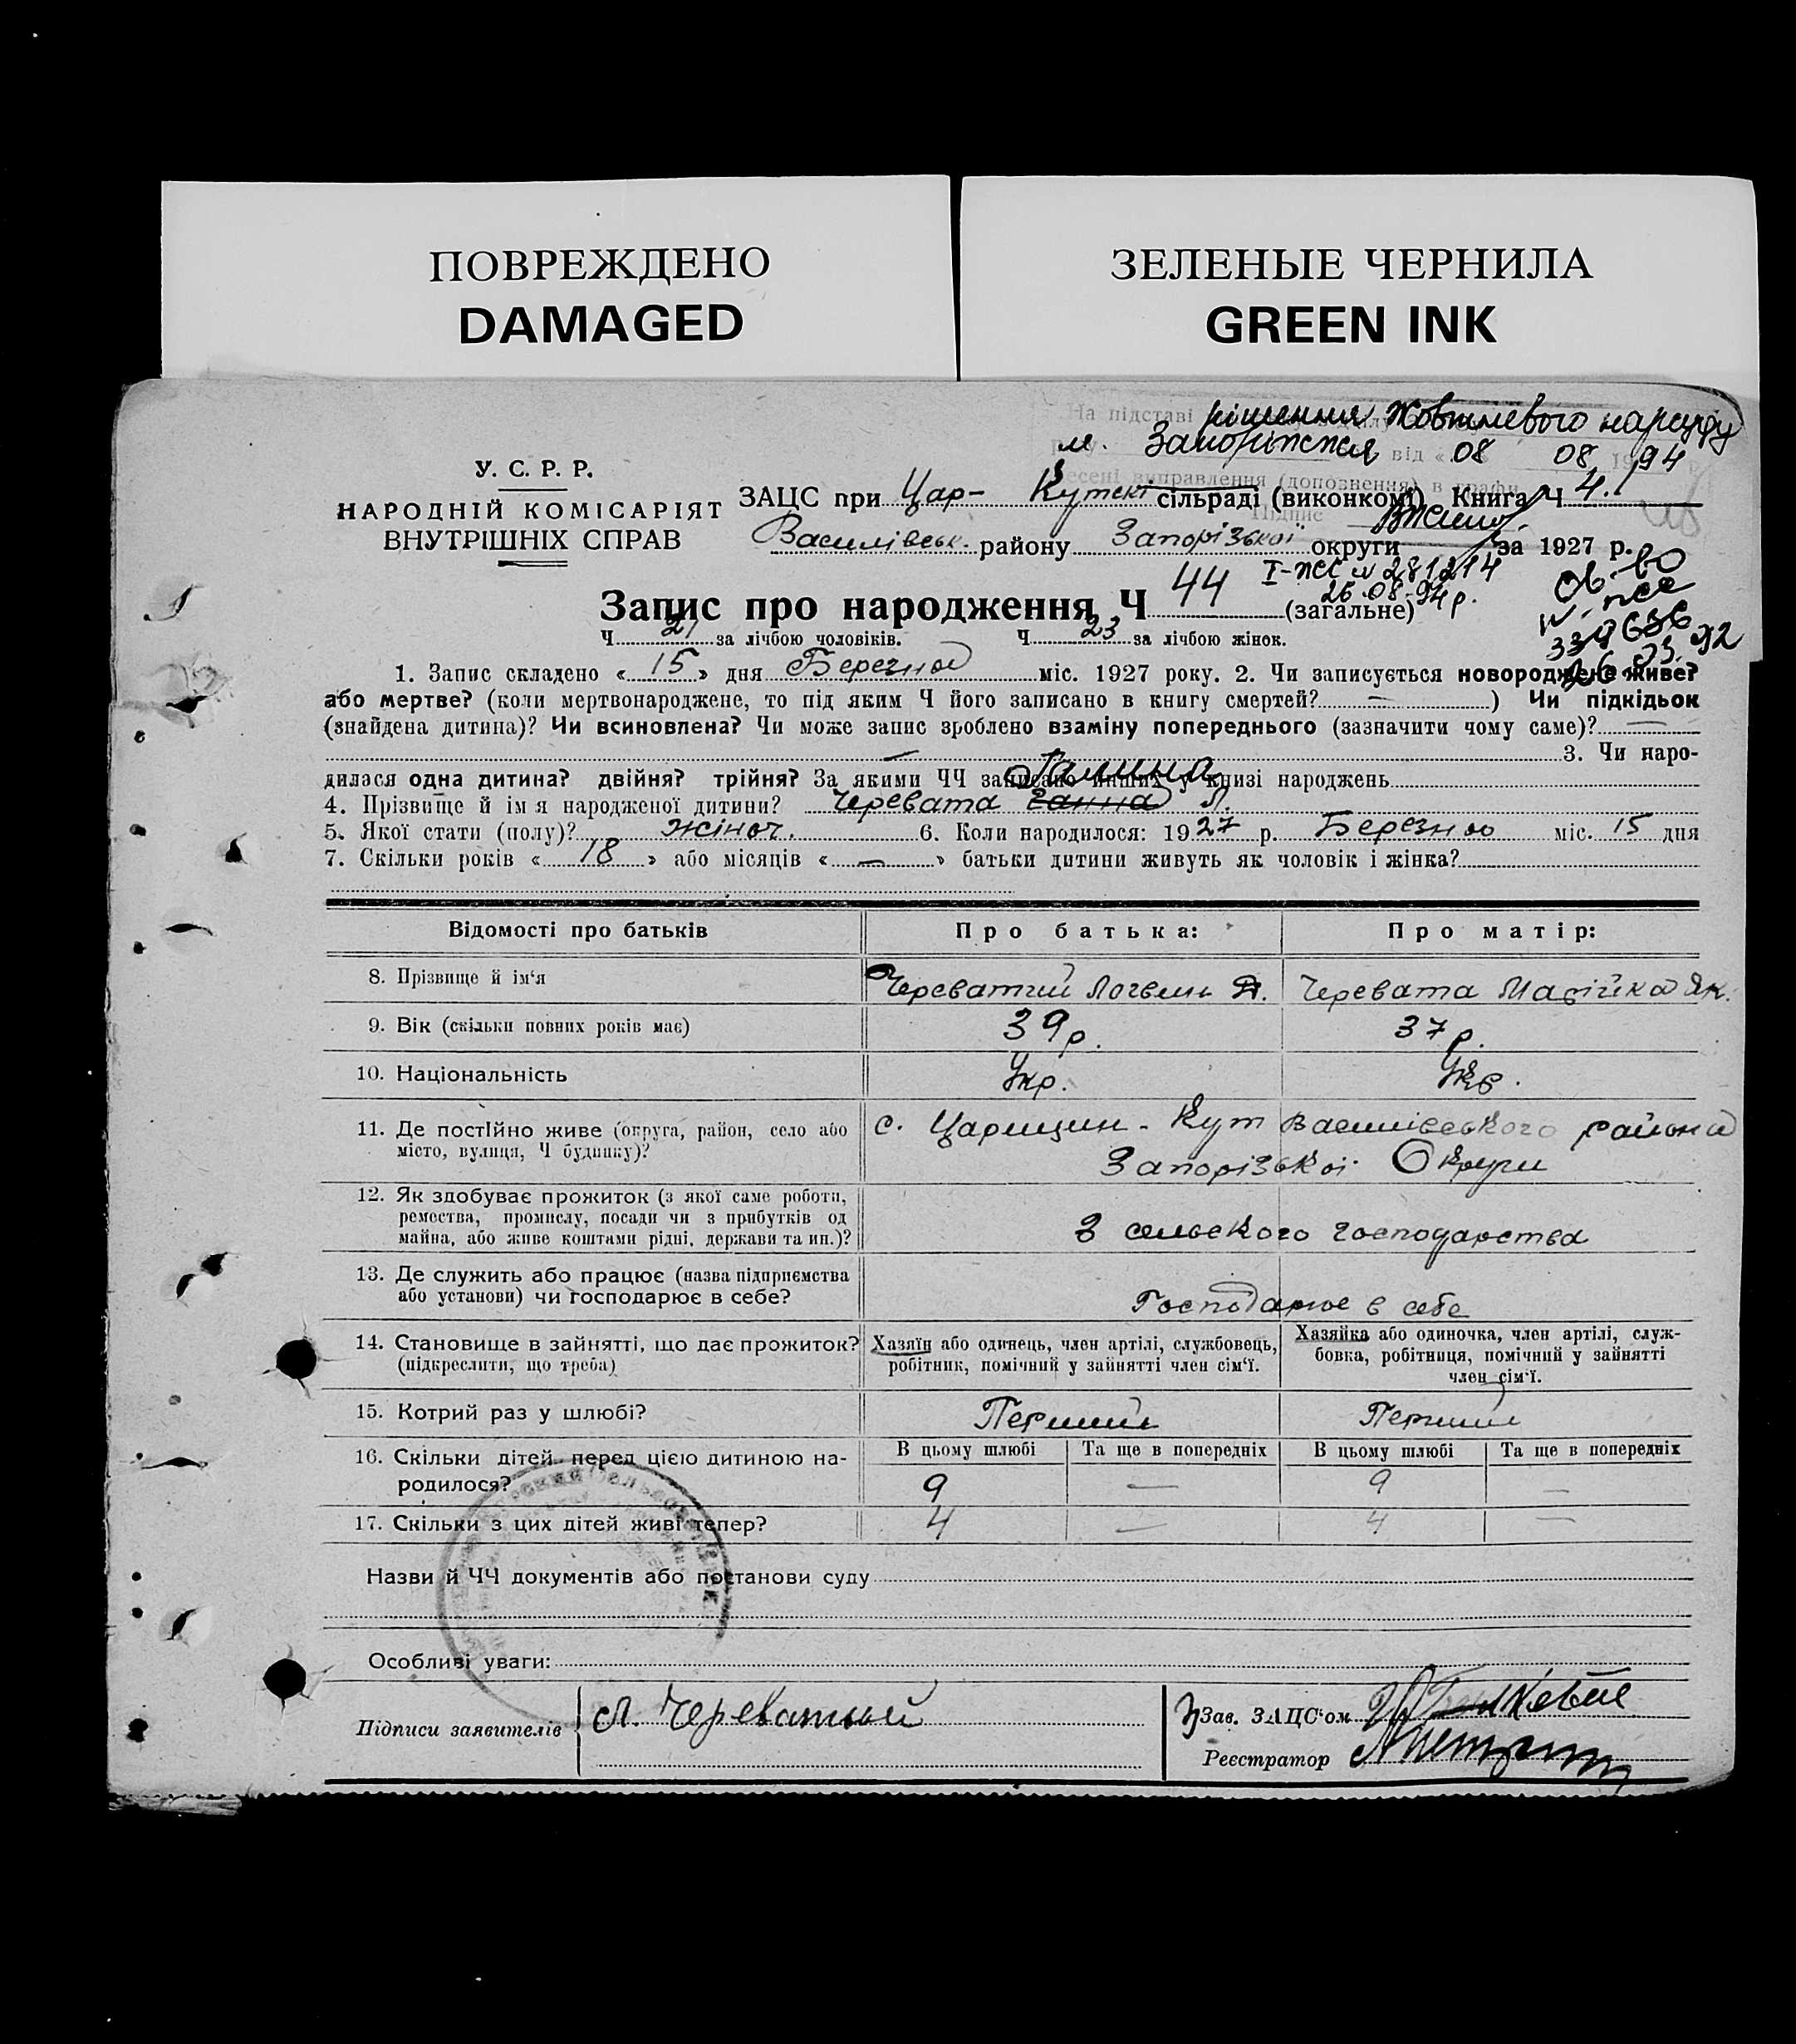 ПОВРЕЖДЕНО
DAMAGED
ЗЕЛЕНЫЕ ЧЕРНИЛА
GREEN INK
На підставі рішення Жовтневого нарсуду
м. Запоріжжя від « 08 08. 1994
виправлення (доповнення) в графи
Підпис
У. С. Р. Р.
НАРОДНІЙ КОМІСАРІЯТ
ВНУТРІШНІХ СПРАВ
ЗАЦС при Цар- Кутскі сільраді (виконкомі) Книга Ч 4.
Василівськ. району Запорізької округи за 1927 р.
І-ЖС № 281214
26.08.94 р.
Запис про народження Ч 44 (загальне)
Ч 21 за лічбою чоловіків. Ч 23 за лічбою жінок.
1. Запис складено « 15 » дня Березня міс. 1927 року. 2. Чи записується новороджене живе?
або мертве? (коли мертвонароджене, то під яким Ч його записано в книгу смертей? — ) Чи підкідьок
(знайдена дитина)? Чи всиновлена? Чи може запис зроблено взаміну попереднього (зазначити чому саме)? —
— 3. Чи наро-
дилася одна дитина? двійня? трійня? За якими ЧЧ записано инших у книзі народжень
Галина
4. Прізвище й імя народженої дитини? Черевата Ганна Л.
5. Якої стати (полу)? жіноч. 6. Коли народилося: 1927 р. Березня міс. 15 дня
7. Скільки років « 18 » або місяців « — » батьки дитини живуть як чоловік і жінка?
Відомості про батьків Про батька: Про матір:
8. Прізвище й ім‘я Череватий Логвин Черевата Марійка Як.
9. Вік (скільки повних років має) 39 р. 37 р.
10. Національність Укр. Укр.
11. Де постійно живе (округа, район, село або
місто, вулиця, Ч будинку)?
с. Царицин-Кут Василівського района
Запорізької Округи
12. Як здобуває прожиток (з якої саме роботи,
ремества, промислу, посади чи з прибутків од
майна, або живе коштами рідні, держави та ин.)?
З сельского господарства
13. Де служить або працює (назва підприємства
або установи) чи господарює в себе?
Господарює в себе
14. Становище в зайнятті, що дає прожиток?
(підкреслити, що треба)
Хазяїн або одинець, член артілі, службовець,
робітник, помічний у зайнятті член сім‘ї.
Хазяйка або одиночка, член артілі, служ-
бовка, робітниця, помічний у зайнятті
член сім‘ї.
15. Котрий раз у шлюбі? Перший Перший
16. Скільки дітей перед цією дитиною на-
родилося?
В цьому шлюбі Та ще в попередніх В цьому шлюбі Та ще в попередніх
9 — 9 —
17. Скільки з цих дітей живі тепер? 4 — 4 —
Назви й ЧЧ документів або постанови суду
Особливі уваги:
Підписи заявителів Л. Череватый
Зав. ЗАЦС‘ом
Реєстратор